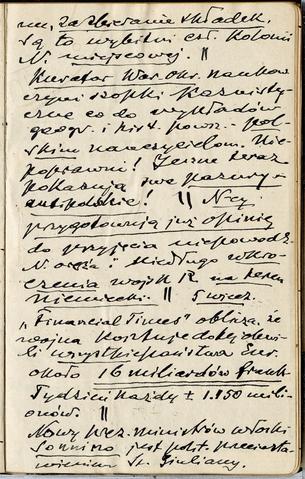 ne, za zbieranie składek,
są to wybitni czł. kolonii
N. miejscowej. ||
Kurator War. Okr. naukow.
czyni szopki
czne co do wykładów
geogr. i hist. powsz. - pol-
skim nauczycielom. Nie-
poprawni! Jeszcze teraz
pokazują swe pazury -
antipolskie! || N-cy
przygotowują już opinię
do przyjęcia niepowodz.
N. oręża." Niedługo wkro-
czenia wojsk R. na teren
niemiecki. || 5 wiecz.
„Financial Times" oblicza, że
wojna kosztuje dotychczas
wszystkie państwa eur.
około 16 miliardów frank.
Tydzień każdy ± 1.150 mili-
onów. ||
Nowy prez. ministrów włoski
Sonnino jest polit. przeciwsta-
wieniem St. Giuliany.